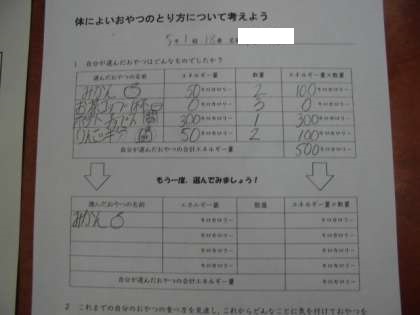 体によいおやつのとり方について考えよう
5年1組18番 名前
1 自分が選んだおやつはどんなものでしたか？
選んだおやつの名前 エネルギー量 数量 エネルギー量×数量
みかん 50キロカロリー 2 100キロカロリー
お茶コップ1杯 0キロカロリー 3 0キロカロリー
300キロカロリー 1 300キロカロリー
りんご 50キロカロリー 2 100キロカロリー
自分が選んだおやつの合計エネルギー量 500キロカロリー
もう一度、選んでみましょう！
選んだおやつの名前 エネルギー量 数量 エネルギー量×数量
みかん キロカロリー キロカロリー
キロカロリー キロカロリー
キロカロリー キロカロリー
キロカロリー キロカロリー
自分が選んだおやつの合計エネルギー量 キロカロリー
2 これまでの自分のおやつの食べ方を見直し、これからどんなことに気を付けておやつを